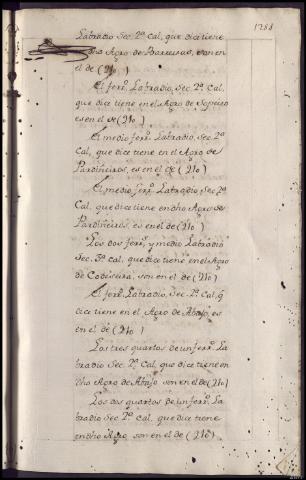 1288
Labradio Sec. 2ª Cal, que dice tiene
dho Agro de Barreiras, es en en
el de (210)
El ferr.º Labradio, Sec. 2ª Cal,
que dice tiene en el Agro de
es en el de (210)
El medio ferr.º Labradio, Sec. 2ª
Cal, que dice tiene en el Agro de
Pardiñeiros, es en el de (210)
El medio ferr.º Labradio Sec. 2ª
Cal. que dice tiene en dho Agro de
Pardiñeiros, es en el de (210)
Los dos ferr.s y medio Labradio
Sec. 3ª Cal, que dice tiene en el Agro
de Codeseira, son en el de (210)
El ferr.º Labradio, Sec. 2ª Cal, q
dice tiene en el Agro de Abajo, es
en el de (210)
Los tres quartos de un ferr.º La
bradio Sec. 2ª Cal, que dice tiene en
dho Agro de Abajo son en el de (210)
Los dos quartos de un ferr.º La
bradio Sec. 2ª Cal. que dice tiene
en dho Agro, son en el de (210)